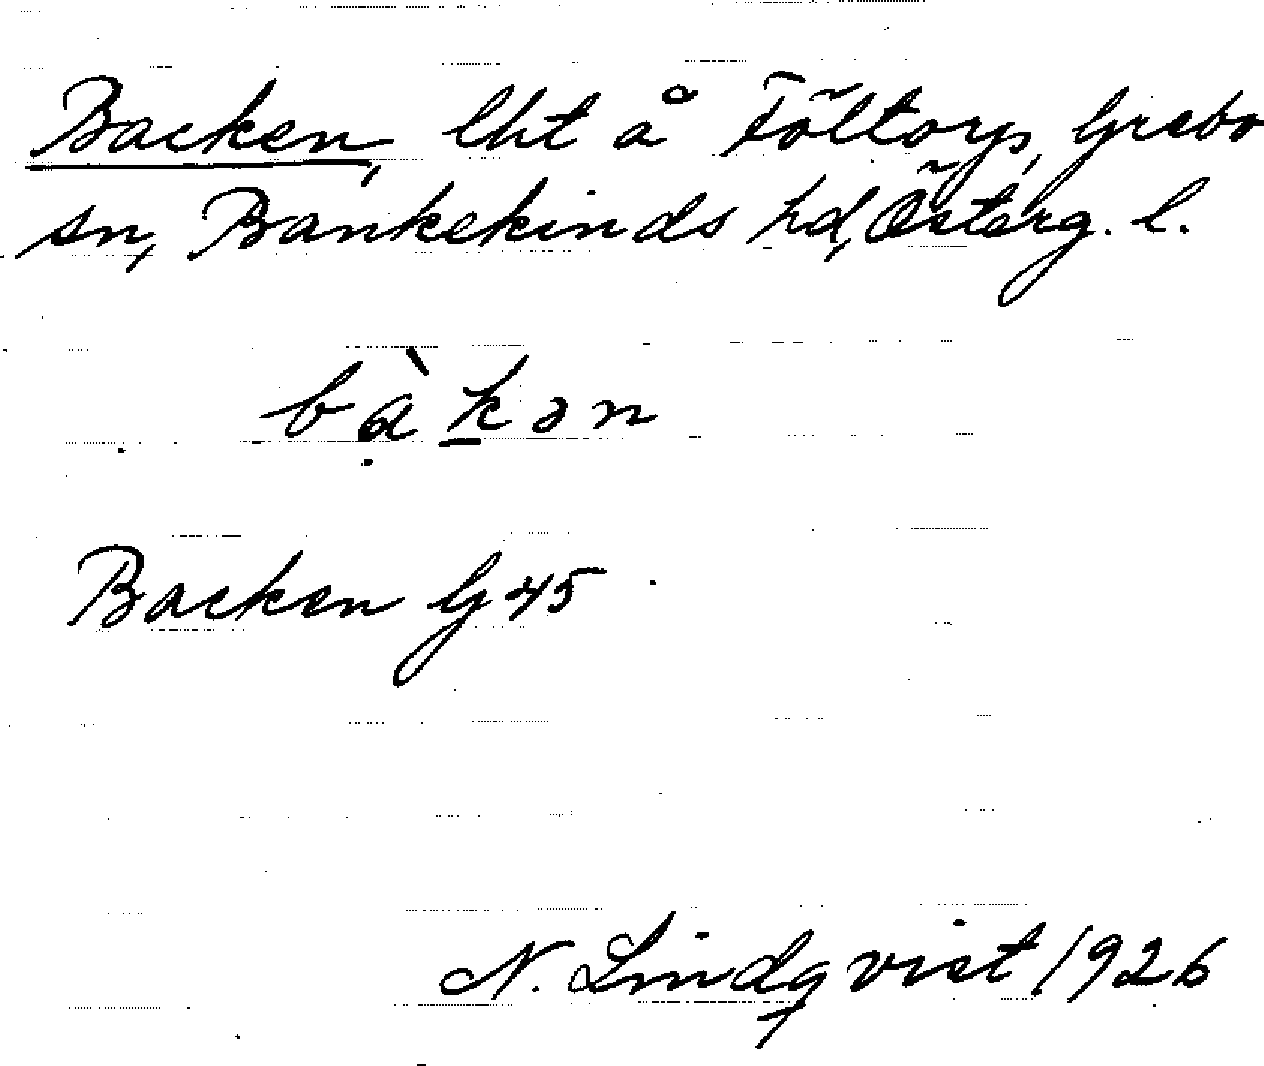 Backen, lht å Föltorp, Grebo
sn, Bankekinds hd, Österg. l.
bàkən
Backen G 45
N. Lindqvist 1926